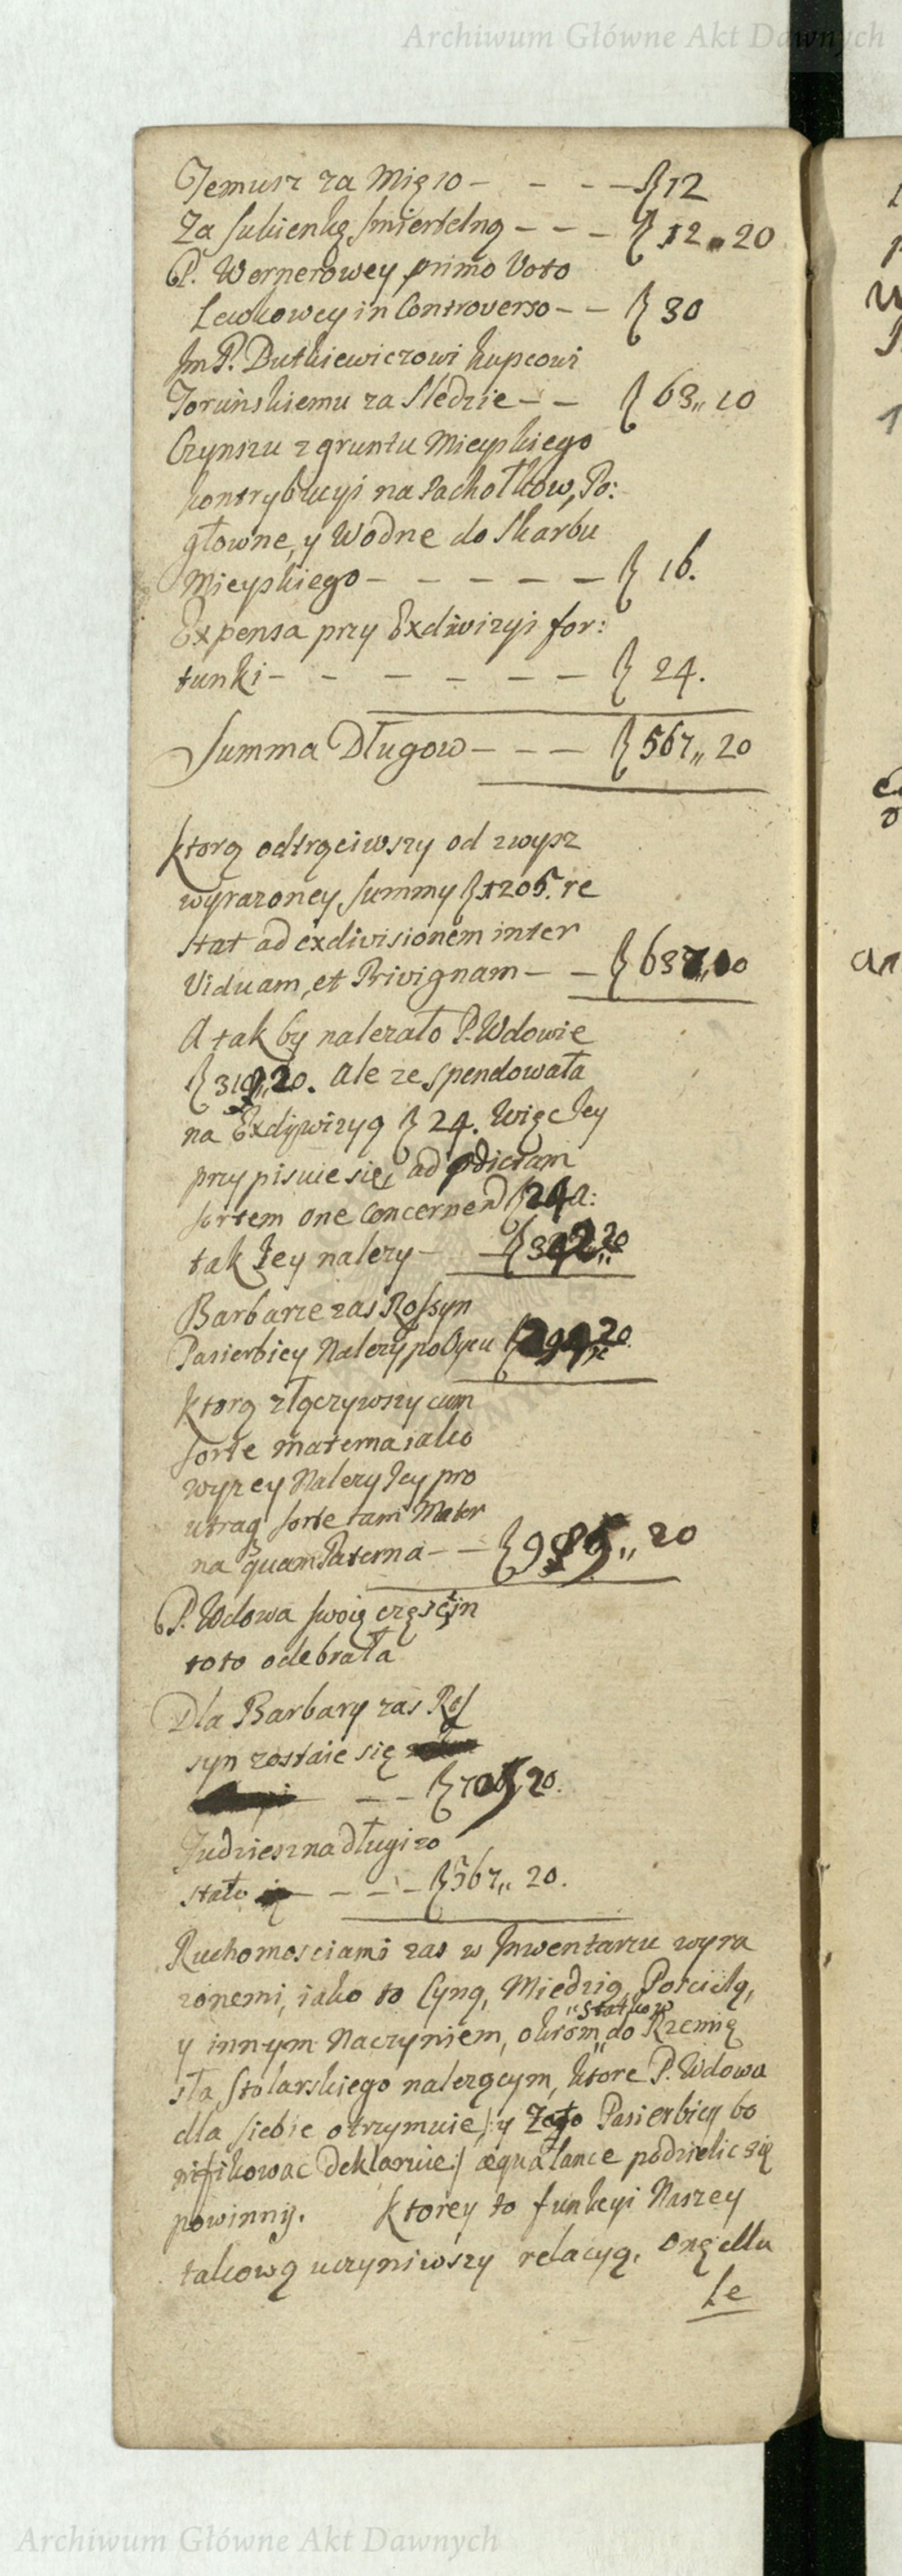 Archiwum Główne Akt Dawnych
Temusz za Mięso - - - - ƶ 12
Za sukienkę smiertelną - - - ƶ 12 „ 20
P. Wernerowey primo Voto
Lewkowey in Controverso - - ƶ 30
Jm P. Dutkiewiczowi kupcowi
Toruńskiemu za Sledzie - - ƶ 63 „ 10
Czynszu z gruntu Mieyskiego
kontrybucyi na Pachołkow, Po:
głowne, y Wodne do Skarbu
Mieyskiego - - - - - ƶ 16.
Expensa przy Exdiwizyi for:
tunki - - - - - - ƶ 24.
Summa Długow - - - ƶ 567 „ 20
ktorą odtrąciwszy od zwysz
wyrazoney summy ƶ 1205. re
stat ad exdivisionem inter
Viduam, et Privignam - - ƶ 637 „ 10
A tak by nalezało P. Wdowie
ƶ 318 „ 20. Ale ze spendowała
na Exdywizyą ƶ 24. Więc Jey
przypisuie się, ad
sortem one concernen ƶ 24 a:
tak Jey nalezy - - ƶ 20
Barbarze zas Rossyn
Pasierbicy Nalezy po Oycu ƶ 20.
ktorą złączywszy cum
sorte materna iako
wyzey Nalezy Jey pro
utraq sorte tam Mater
na quam Paterna - - ƶ 985 „ 20
P. Wdowa swoię częsc in
toto odebrała
Dla Barbary zas Ros
syn zostaie się
- - ƶ 705 „ 20.
Tudziesz na długi zo
stało - - - - ƶ 567 „ 20.
Ruchomosciami zas w Inwentarzu wyra
zonemi, iako to Cyną, Miedzią, Poscielą,
„Statkow
y innym Naczyniem, okrom „ do Rzemię
sła Stolarskiego nalezącym, ktore P. Wdowa
dla siebie otrzymuie /: y Zato Pasierbicy bo
nifikowac Deklaruie :/ æqua lance podzielic się
powinny. Ktorey to funkcyi Naszey
takową uczyniwszy relacyą, Onę
Archiwum Główne Akt Dawnych